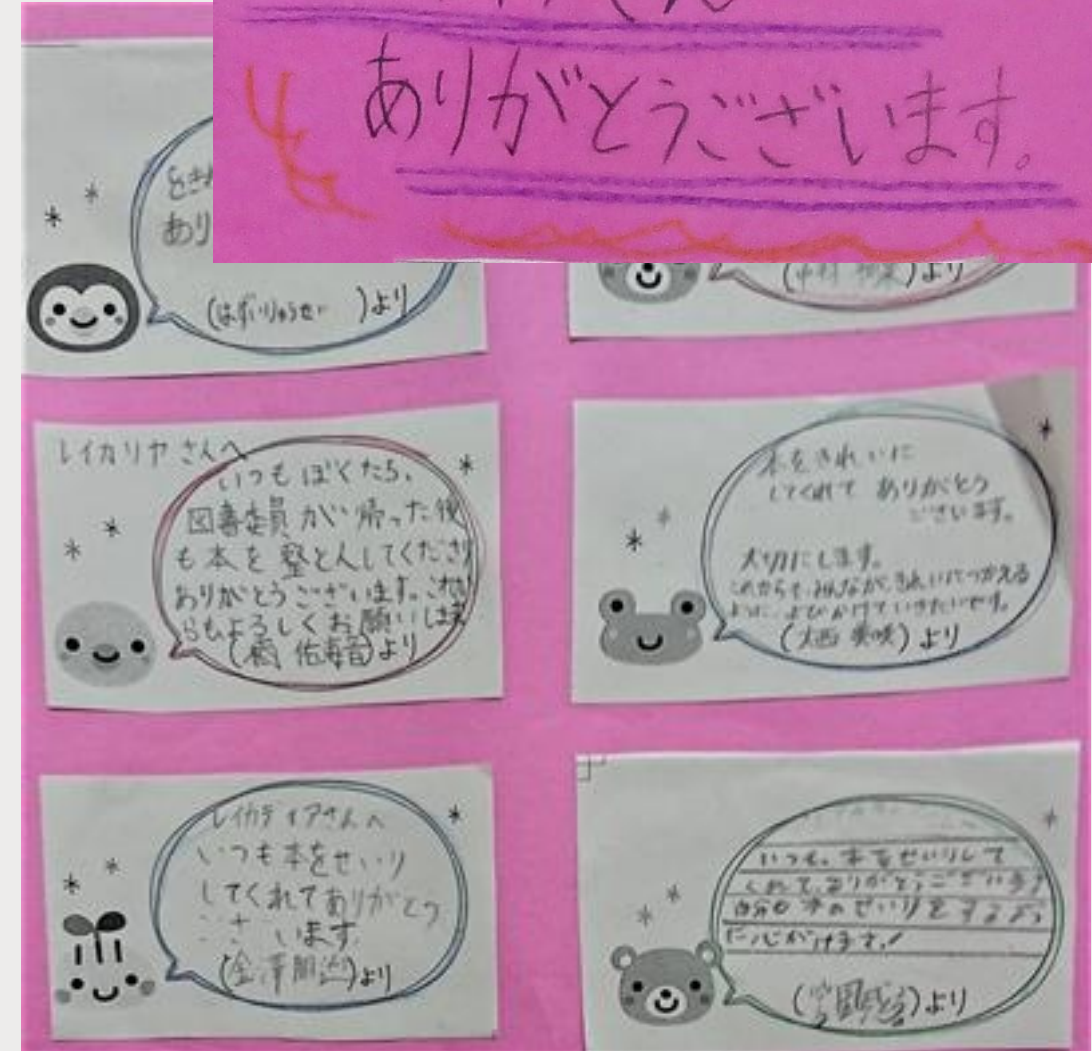 ありがとうございます。
あり
(はずいりゅうせい)より
より
レイカリヤさんへ
いつもぼくたち、
図書委員が帰った後
も本を整とんしてくださり
ありがとうございます。これか
らもよろしくお願いします
佑海音)より
本をきれいに
してくれて ありがとう
ございます。
大切にします。
これからも、みんなが、きれいにつかえる
ように、よびかけていきたいです。
(大西 美咲)より
レイカディアさんへ
いつも本をせいり
してくれてありがとう
ございます
(金澤朋)より
いつも、本をせいりして
くれて、ありがとうございます
自分も本のせいりをするよう
に心がけます。!
より